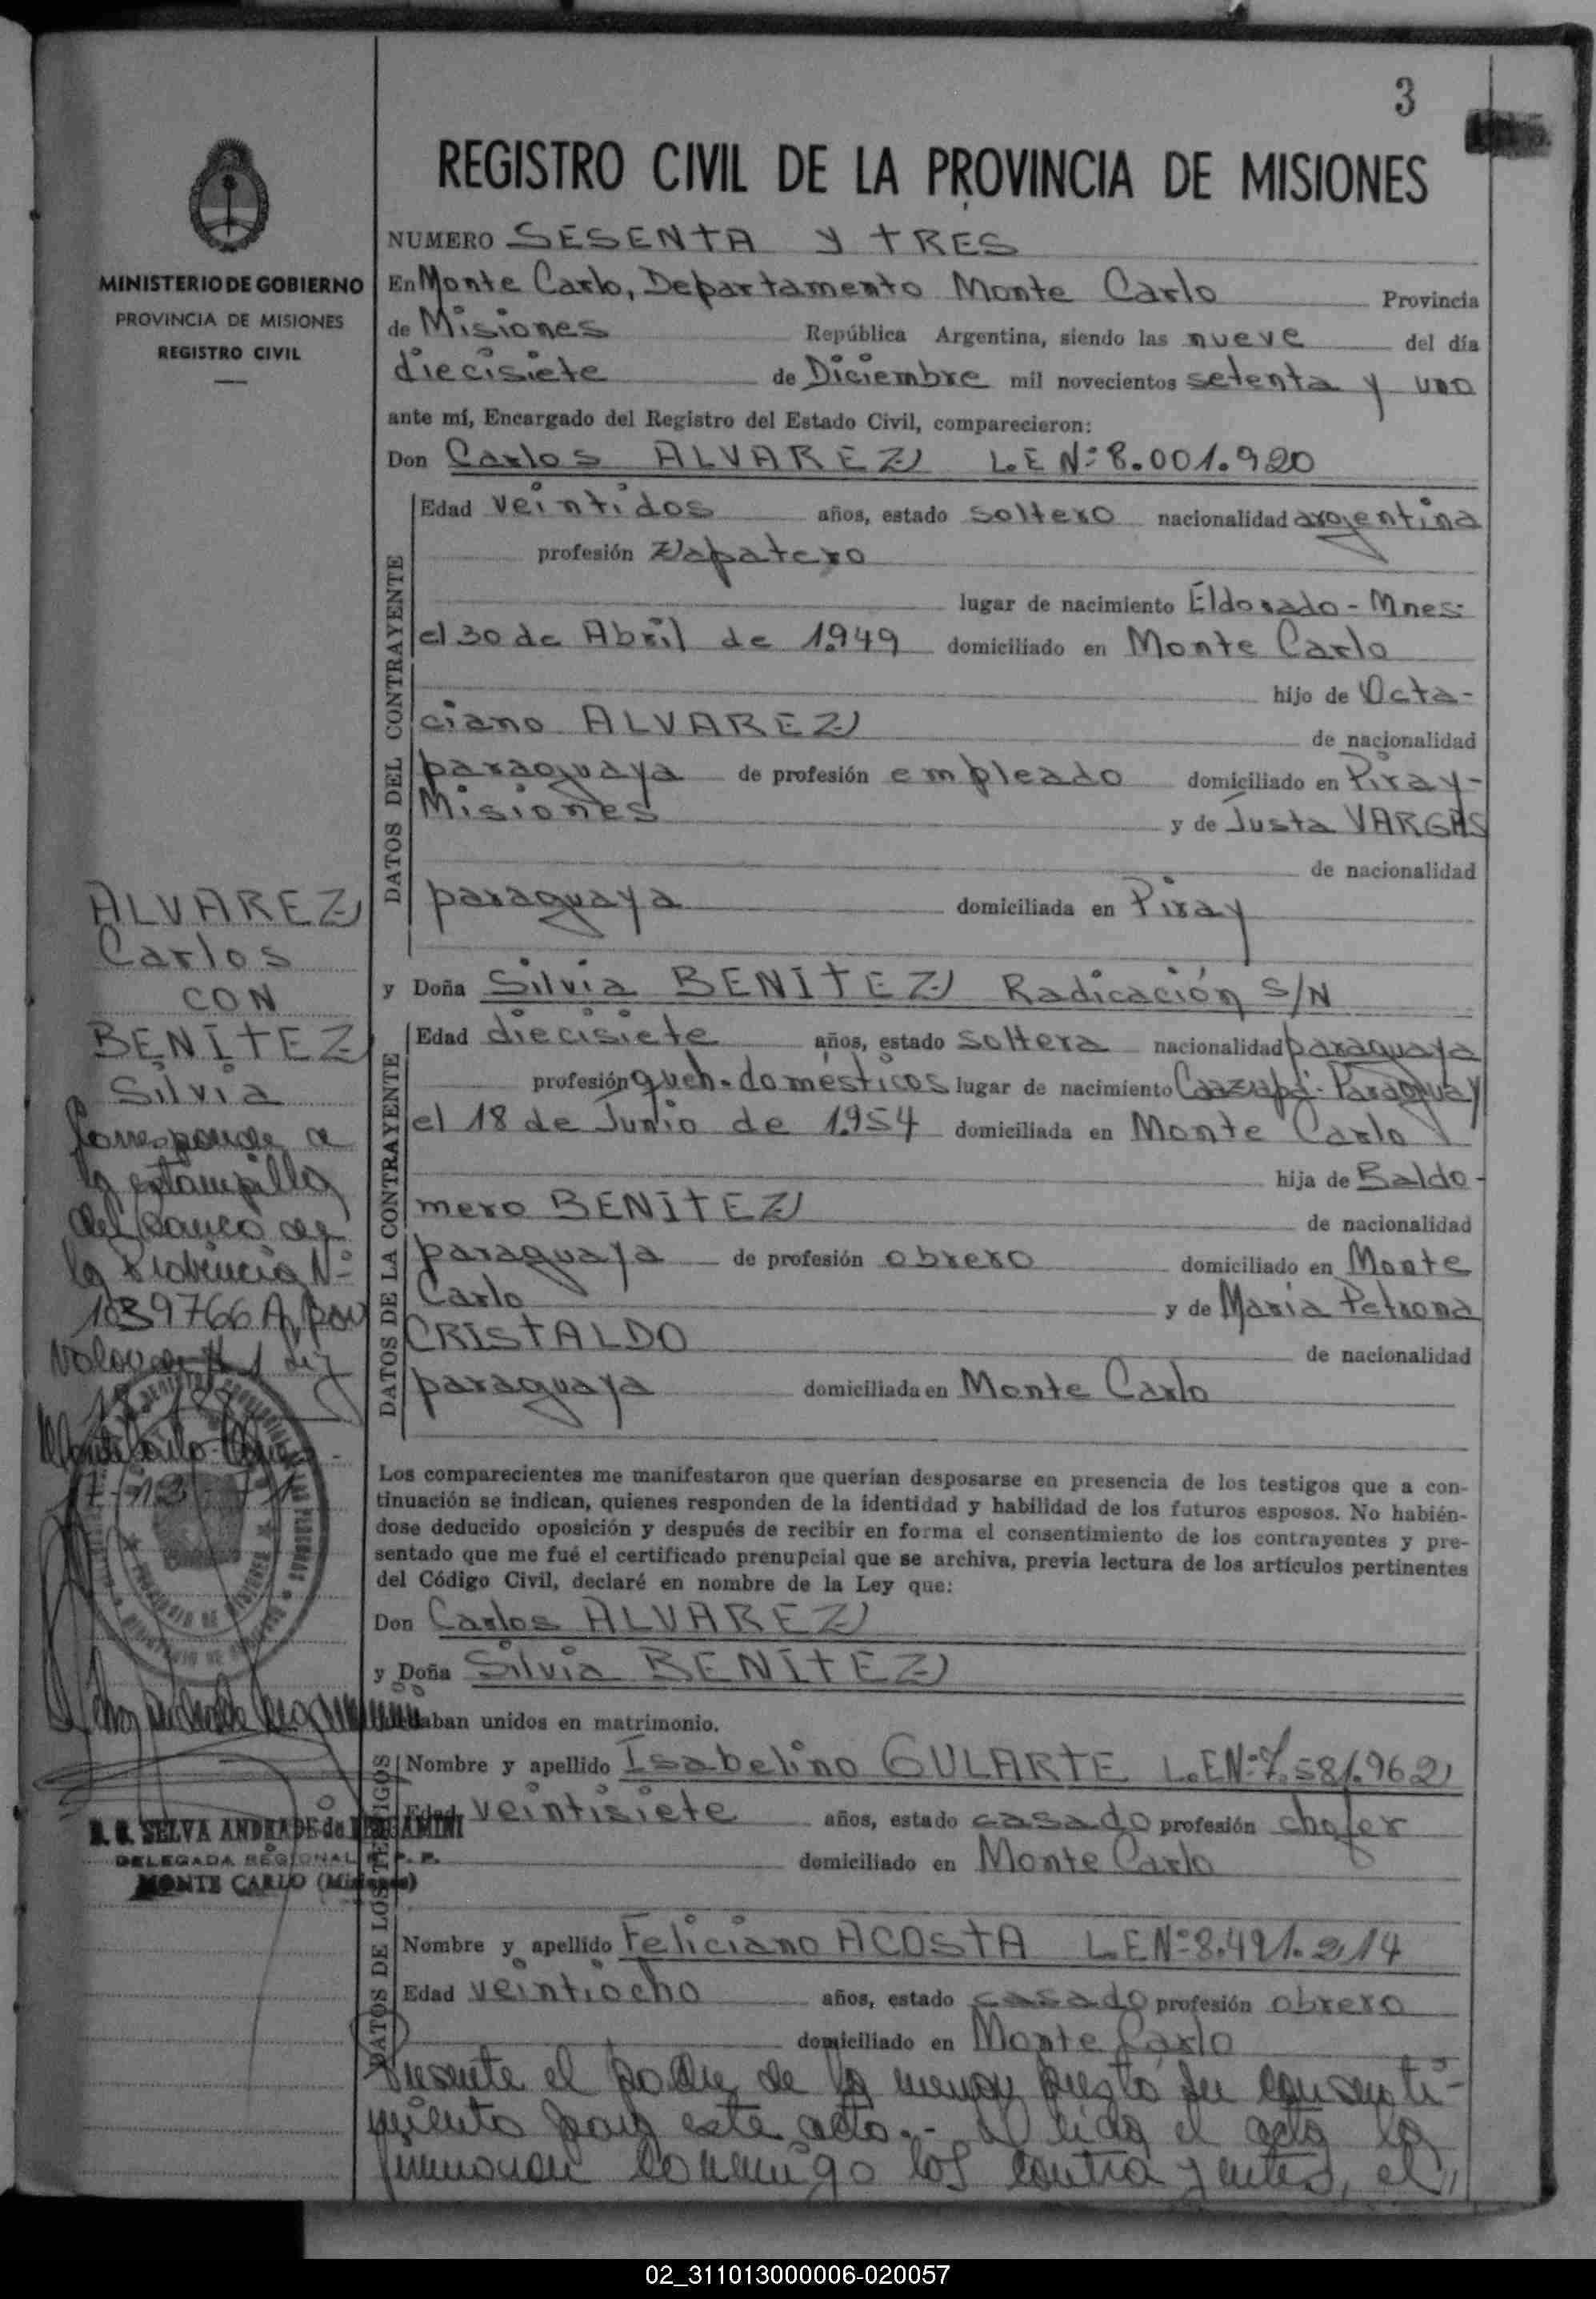 3
REGISTRO CIVIL DE LA PROVINCIA DE MISIONES
MINISTERIO DE GOBIERNO
PROVINCIA DE MISIONES
REGISTRO CIVIL
NUMERO SESENTA Y TRES
En Monte Carlo, Departamento Monte Carlo Provincia
de Misiones República Argentina, siendo las nueve del día
diecisiete de Diciembre mil novecientos setenta y uno
ante mí, Encargado del Registro del Estado Civil, comparecieron:
Don Carlos ALVAREZ L.E Nº 8.001.920
DATOS DEL CONTRAYENTE
Edad veintidos años, estado soltero nacionalidad argentina
profesión Zapatero
lugar de nacimiento Eldorado - Mnes.
el 30 de Abril de 1.949 domiciliado en Monte Carlo
hijo de Octa-
ciano ALVAREZ de nacionalidad
paraguaya de profesión empleado domiciliado en Piray-
Misiones y de Justa VARGAS
de nacionalidad
paraguaya domiciliada en Piray
y Doña Silvia BENITEZ Radicación S/N
DATOS DE LA CONTRAYENTE
Edad diecisiete años, estado soltera nacionalidad paraguaya
profesión queh. domésticos lugar de nacimiento Caazapá - Paraguay
el 18 de Junio de 1.954 domiciliada en Monte Carlo
hija de Baldo-
mero BENITEZ de nacionalidad
paraguaya de profesión obrero domiciliado en Monte
Carlo y de Maria Petrona
CRISTALDO de nacionalidad
paraguaya domiciliada en Monte Carlo
Los comparecientes me manifestaron que querían desposarse en presencia de los testigos que a con-
tinuación se indican, quienes responden de la identidad y habilidad de los futuros esposos. No habién-
dose deducido oposición y después de recibir en forma el consentimiento de los contrayentes y pre-
sentado que me fué el certificado prenupcial que se archiva, previa lectura de los artículos pertinentes
del Código Civil, declaré en nombre de la Ley que:
Don Carlos ALVAREZ
y Doña Silvia BENITEZ
quedaban unidos en matrimonio.
DATOS DE LOS TESTIGOS
Nombre y apellido Isabelino GULARTE L.E Nº 7.581.962
Edad veintisiete años, estado casado profesión chofer
domiciliado en Monte Carlo
Nombre y apellido Feliciano ACOSTA L.E Nº 8.491.214
Edad veintiocho años, estado casado profesión obrero
domiciliado en Monte Carlo
Presente el padre de la menor presta su consenti-
miento para este acto.- Leida el acta la
firmaron conmigo los contrayentes, el
ALVAREZ
Carlos
CON
BENITEZ
Silvia
Corresponde a
la estampilla
del Banco de
la Provincia Nº
1039766 A, por
valor de $ 1
Monte Carlo
SELVA ANDRADE de BERGAMINI
DELEGADA REGIONAL R. P. P.
MONTE CARLO (Misiones)
02_311013000006-020057